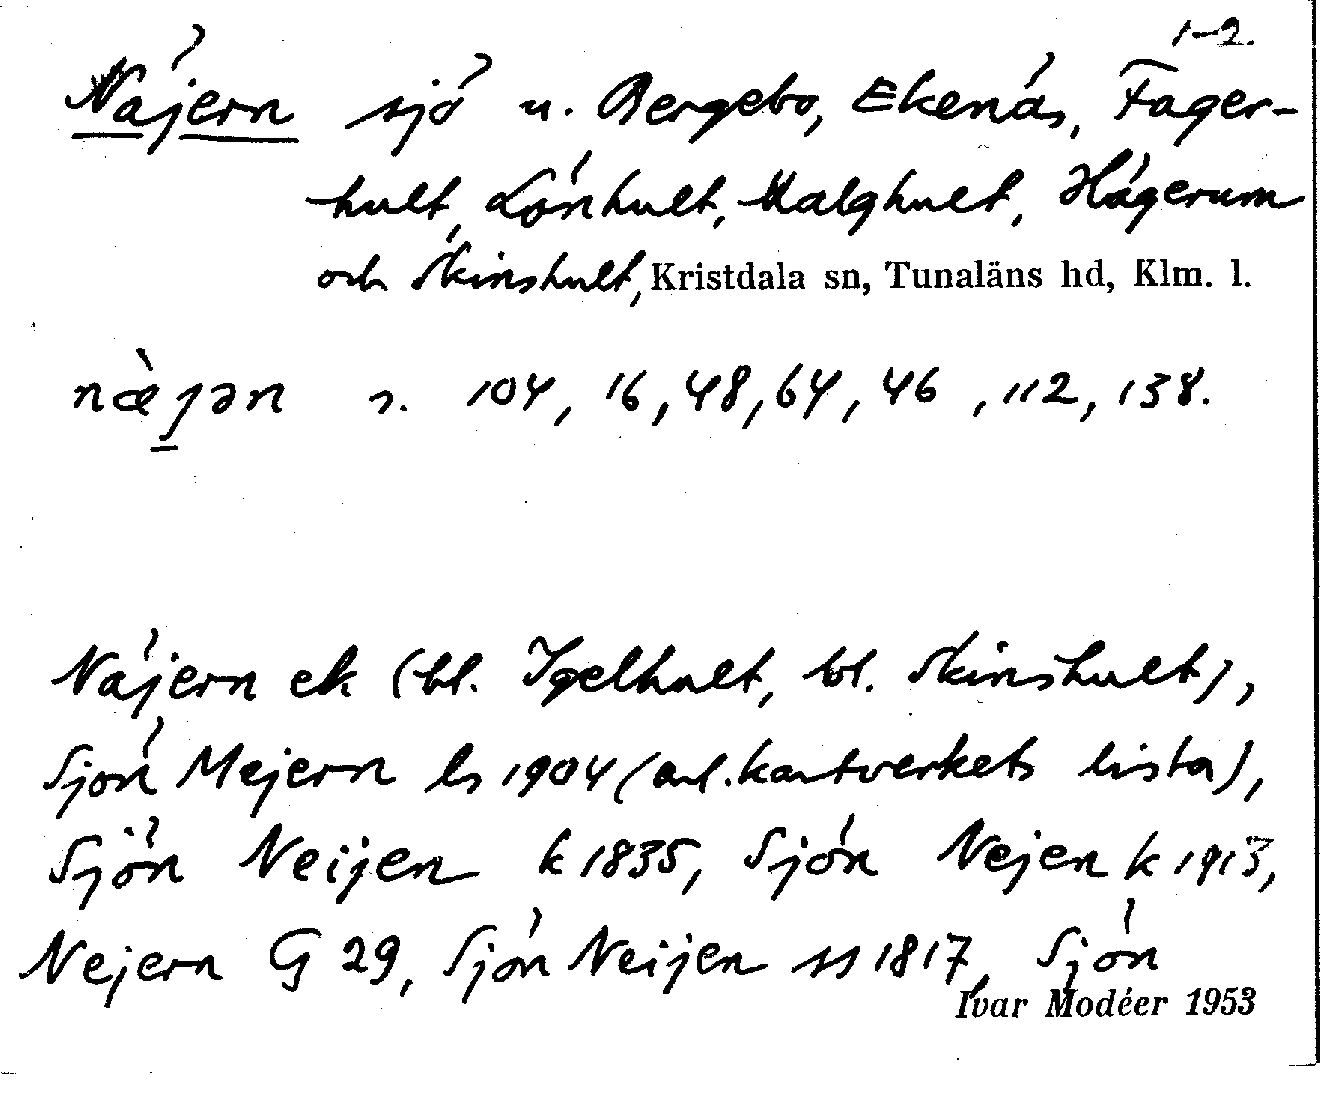 1-2.
Näjern sjö u. Bergebo, Ekenäs, Fager-
hult, Lönhult, Malghult, Hägerum
och Skinshult, Kristdala sn, Tunaläns hd, Klm. l.
næ̀ȷən s. 104, 16, 48, 64, 46, 112, 138.
Näjern ek (bl. Igelhult, bl. Skinshult),
Sjön Mejern ls 1904 (enl. kartverkets lista),
Sjön Neijen k 1835, Sjön Nejen k 1913,
Nejern G 29, Sjön Neijen ss 1817, Sjön
Ivar Modéer 1953